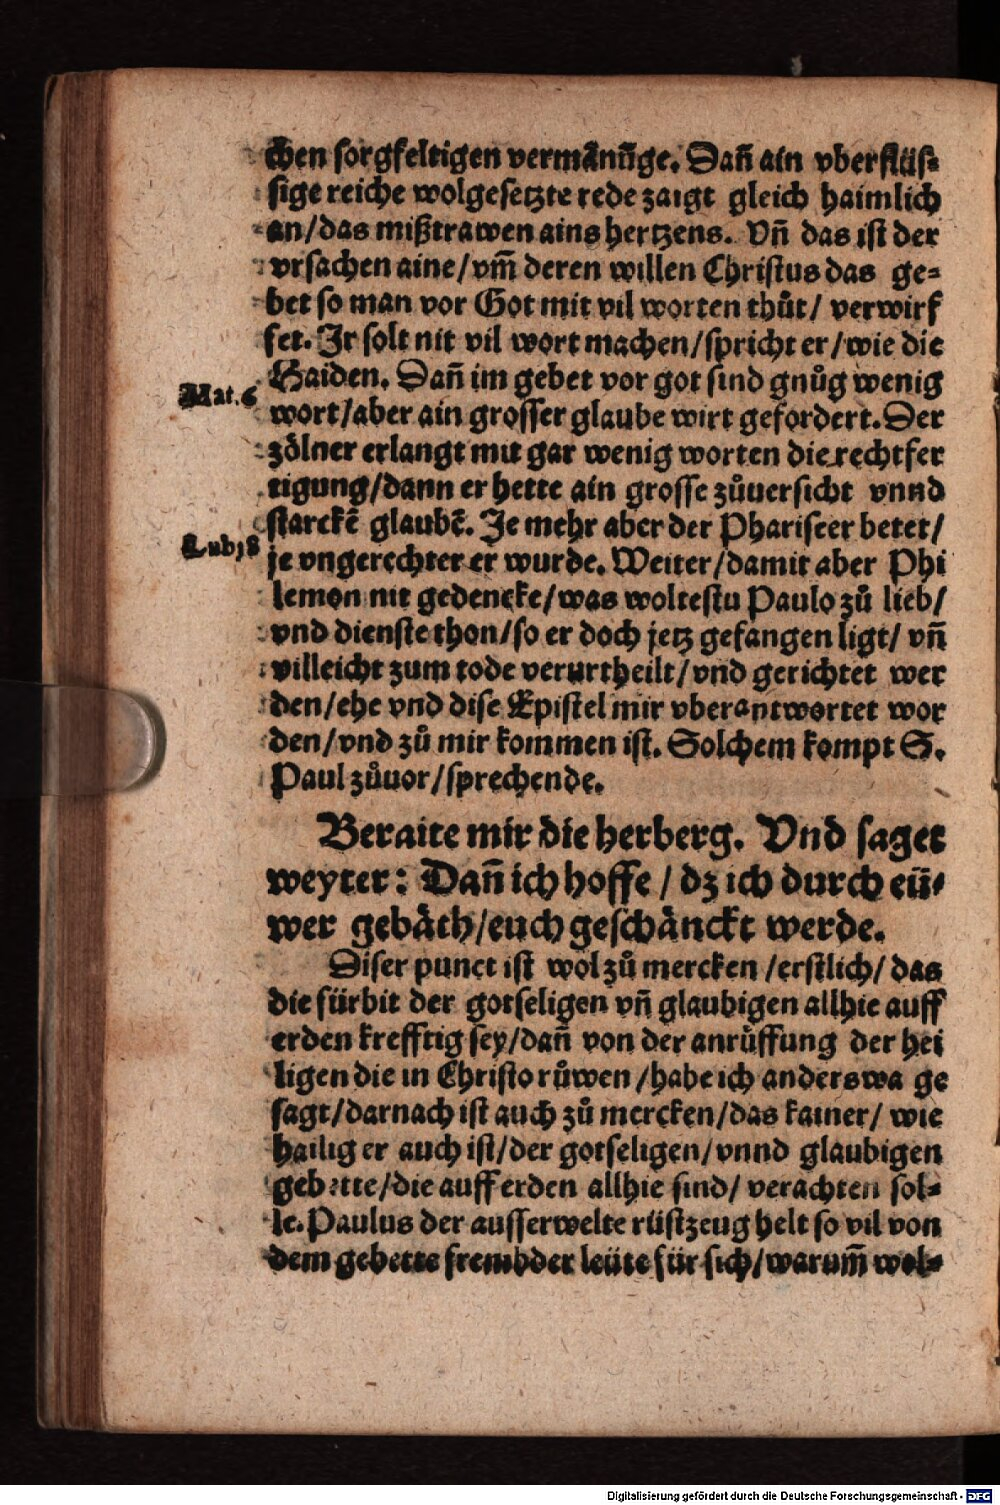 chen sorgfeltigen vermãnũge. Dañ ain vberflüs⸗
sige reiche wolgesetzte rede zaigt gleich haimlich
an/das mißtrawen ains hertzens. Vñ das ist der
vrsachen aine/vm̃ deren willen Christus das ge⸗
bet so man vor Got mit vil worten thůt/ verwirf
fet. Ir solt nit vil wort machen/spricht er/wie die
Haiden. Dañ im gebet vor got sind gnůg wenig
Mat.6
wort/aber ain grosser glaube wirt gefordert. Der
zölner erlangt mit gar wenig worten die rechtfer
tigung/dann er hette ain grosse zůuersicht vnnd
starckẽ glaubẽ. Je mehr aber der Phariseer betet/
je vngerechter er wurde. Weiter/damit aber Phi
lemon nit gedencke/was woltestu Paulo zů lieb/
vnd dienste thon/so er doch jetz gefangen ligt/ vñ
villeicht zum tode verurtheilt/vnd gerichtet wer
den/ehe vnd dise Epistel mir vberantwortet wor
den/vnd zů mir kommen ist. Solchem kompt S.
Paul zůuor/sprechende.
Beraite mir die herberg. Vnd saget
weyter: Dañ ich hoffe / dz ich durch eü⸗
wer gebäth/euch geschänckt werde.
Diser punct ist wol zů mercken /erstlich/ das
die fürbit der gotseligen vñ glaubigen allhie auff
erden krefftig sey/dañ von der anrůffung der hei
ligen die in Christo růwen /habe ich anderswa ge
sagt/darnach ist auch zů mercken/das kainer/ wie
hailig er auch ist/der gotseligen/vnnd glaubigen
gebette/die auff erden allhie sind/ verachten sol⸗
le. Paulus der ausserwelte rüstzeug helt so vil von
dem gebette frembder leüte für sich/warum̃ wol⸗
Digitalisierung gefördert durch die Deutsche Forschungsgemeinschaft - DFG